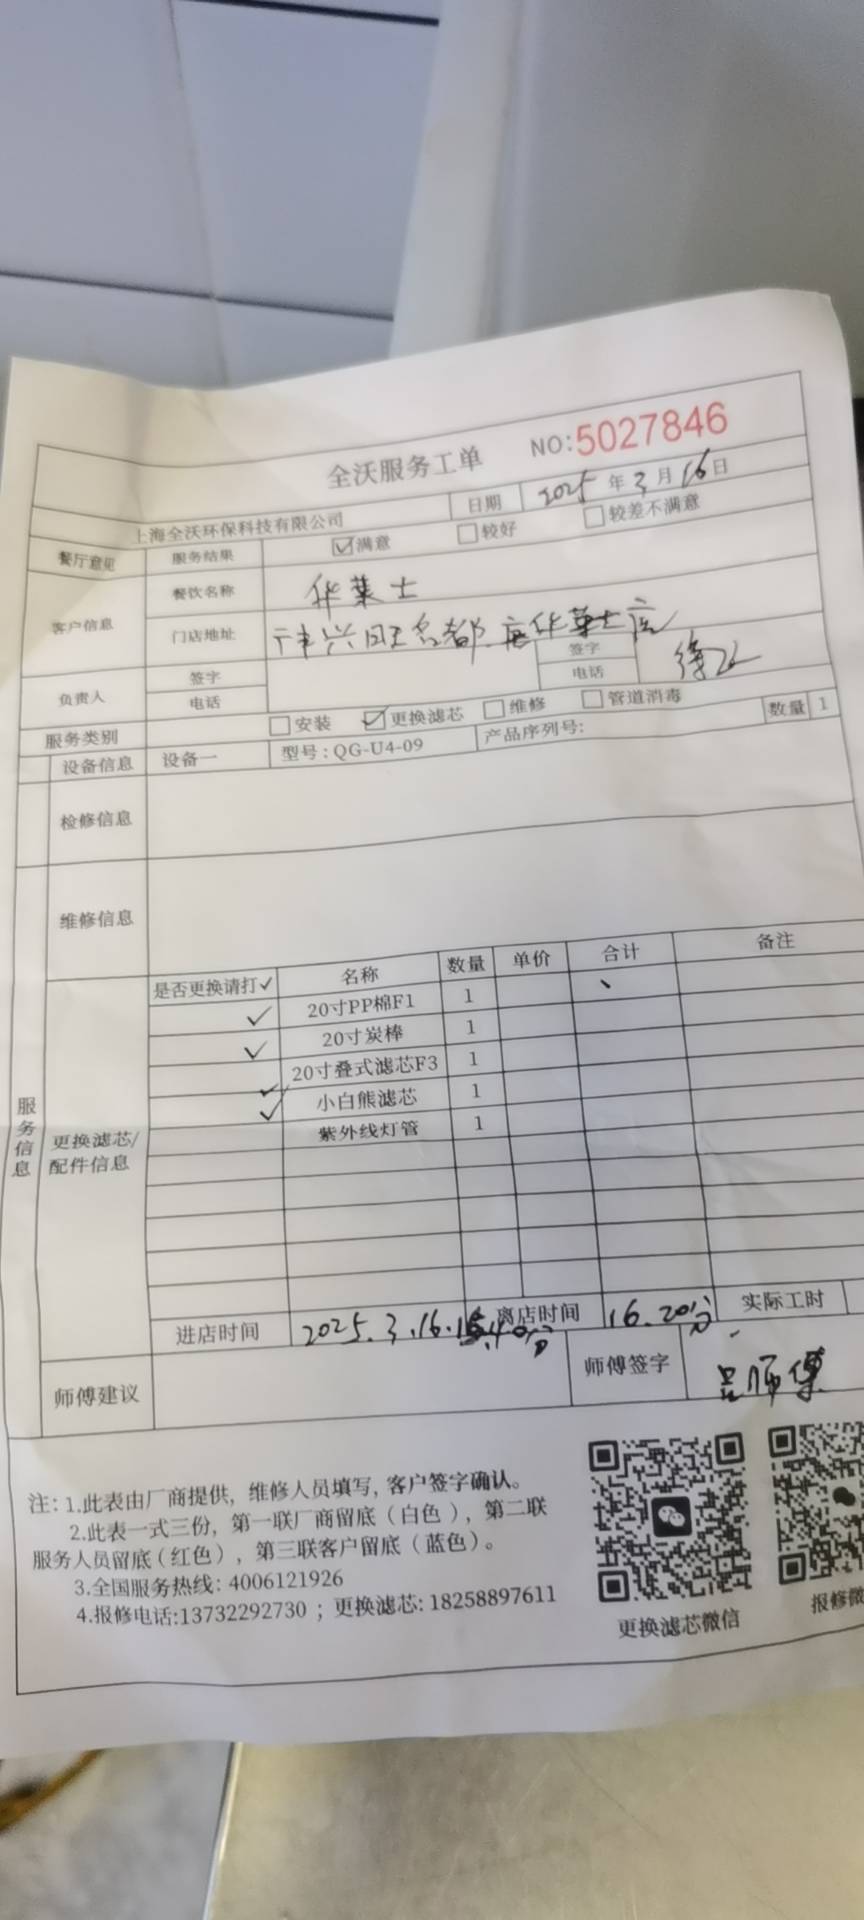 全沃服务工单 NO:5027846
上海全沃环保科技有限公司 日期 2025年3月16日
餐厅意见 服务结果 ☑满意 □较好 □较差不满意
客户信息 餐饮名称 华莱士
门店地址 兴旺名都 华莱士店
负责人 签字 签字
电话 电话
服务类别 □安装 ☑更换滤芯 □维修 □管道消毒
设备信息 设备一 型号:QG-U4-09 产品序列号: 数量 1
检修信息
维修信息
服务信息
更换滤芯/配件信息
是否更换请打✓ 名称 数量 单价 合计 备注
✓ 20寸PP棉F1 1
✓ 20寸炭棒 1
✓ 20寸叠式滤芯F3 1
✓ 小白熊滤芯 1
紫外线灯管 1
进店时间 2025.3.16. 离店时间 16.20分 实际工时
师傅建议 师傅签字 吕师傅
注: 1.此表由厂商提供, 维修人员填写, 客户签字确认。
2.此表一式三份, 第一联厂商留底(白色), 第二联
服务人员留底(红色), 第三联客户留底(蓝色)。
3.全国服务热线: 4006121926
4.报修电话:13732292730 ; 更换滤芯: 18258897611
更换滤芯微信
报修微